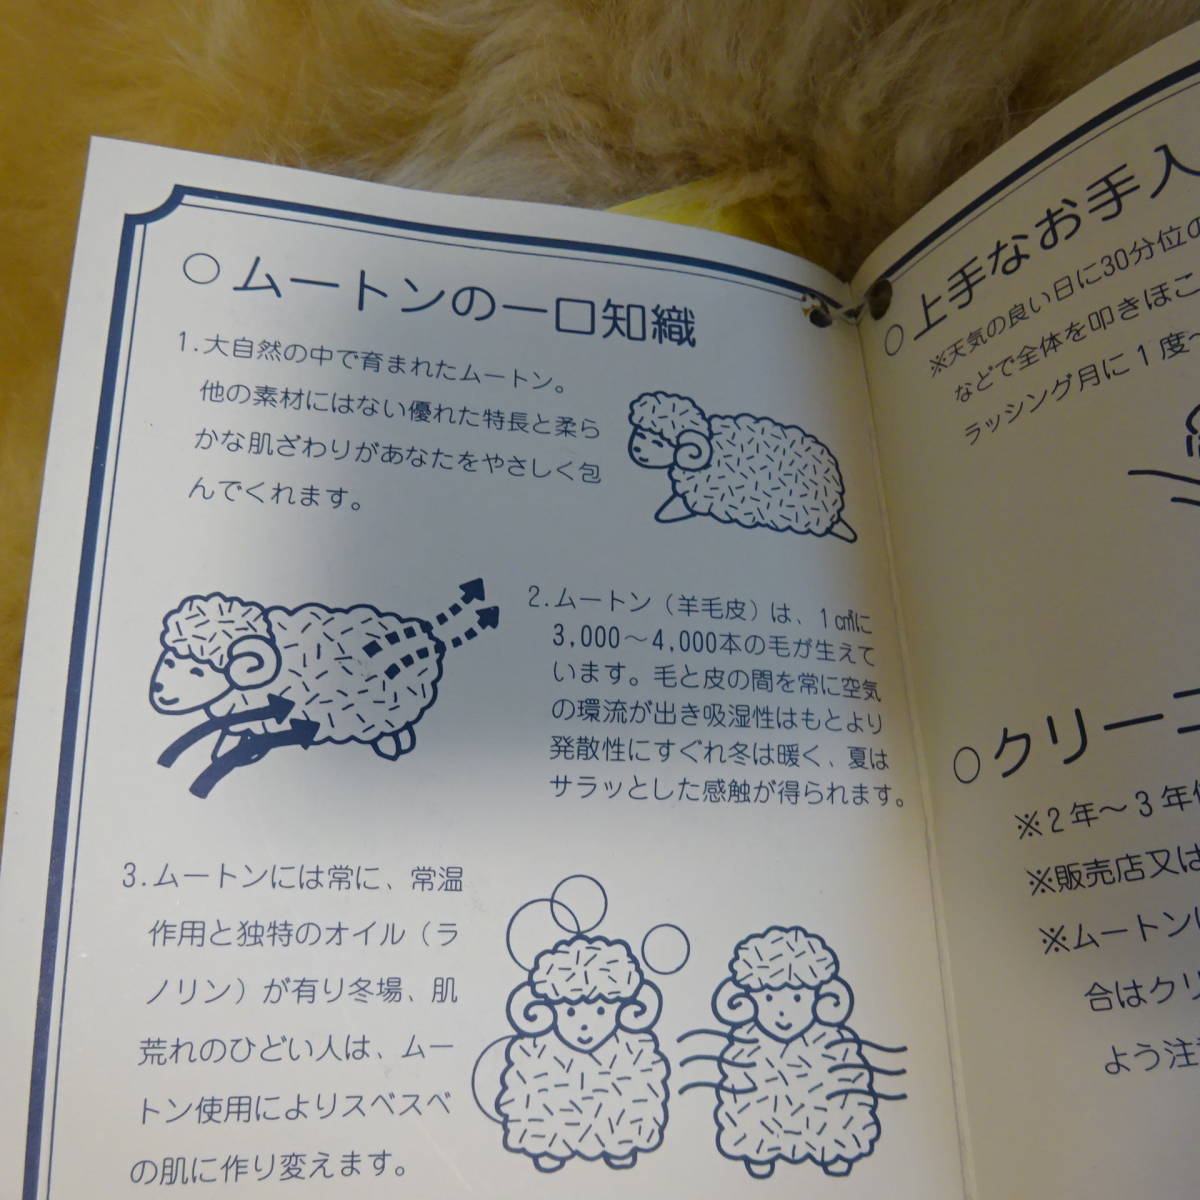 ○ムートンの一口知織
1.大自然の中で育まれたムートン。
他の素材にはない優れた特長と柔ら
かな肌ざわりがあなたをやさしく包
んでくれます。
2.ムートン（羊毛皮）は、1㎠に
3,000〜4,000本の毛が生えて
います。毛と皮の間を常に空気
の環流が出き吸湿性はもとより
発散性にすぐれ冬は暖く、夏は
サラッとした感触が得られます。
3.ムートンには常に、常温
作用と独特のオイル（ラ
ノリン）が有り冬場、肌
荒れのひどい人は、ムー
トン使用によりスベスベ
の肌に作り変えます。
○上手なお手入
※天気の良い日に30分位の
などで全体を叩きほこ
ラッシング月に1度〜
○クリーニ
※2年〜3年使
※販売店又は
※ムートンは
合はクリ
よう注意